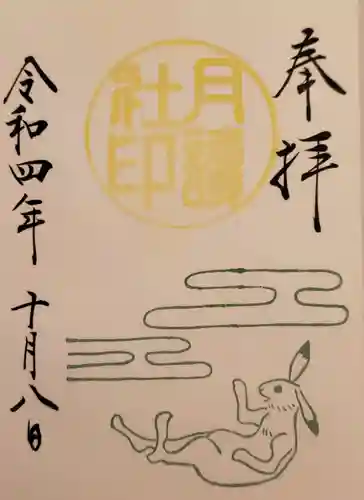 奉拝
月讀
社印
令和四年 十月八日